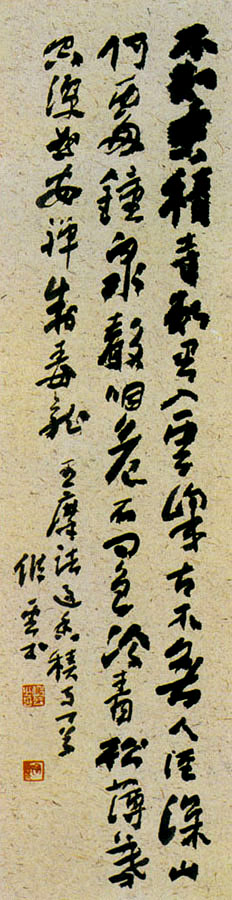 不知香積寺數里入雲峰古木無人徑深山
何處鐘泉聲咽危石日色冷青松薄暮
空潭曲安禪制毒龍 王摩詰過香積寺一首